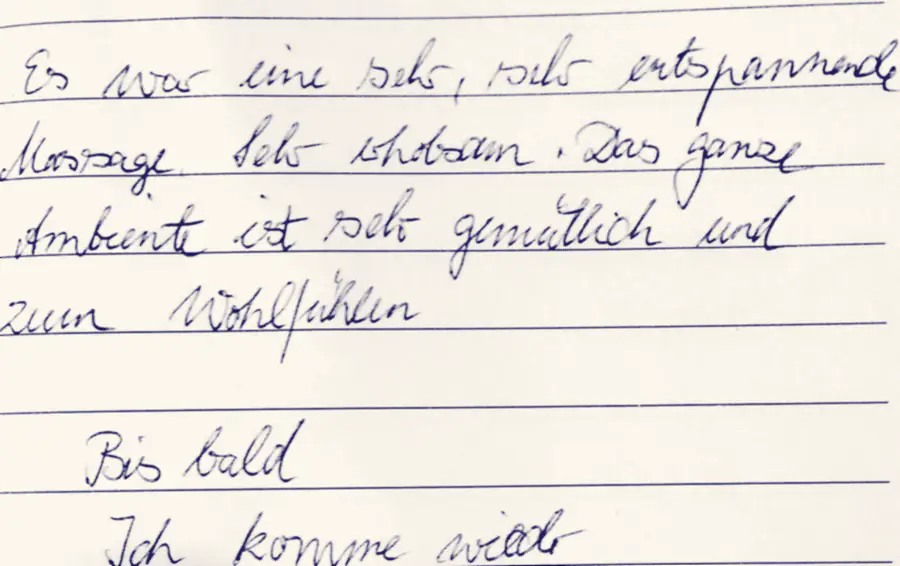 Es war eine sehr, sehr entspannende
Massage. Sehr erholsam. Das ganze
Ambiente ist sehr gemütlich und
zum Wohlfühlen
Bis bald
Ich komme wieder